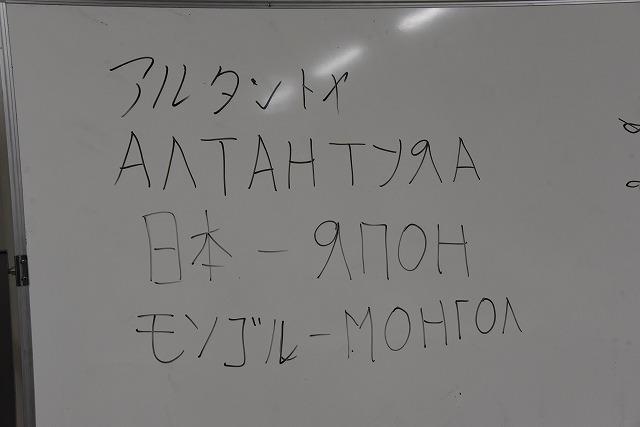 アルタントヤ
АЛТАНТУЯА
日本 - ЯПОН
モンゴル - МОНГОЛ